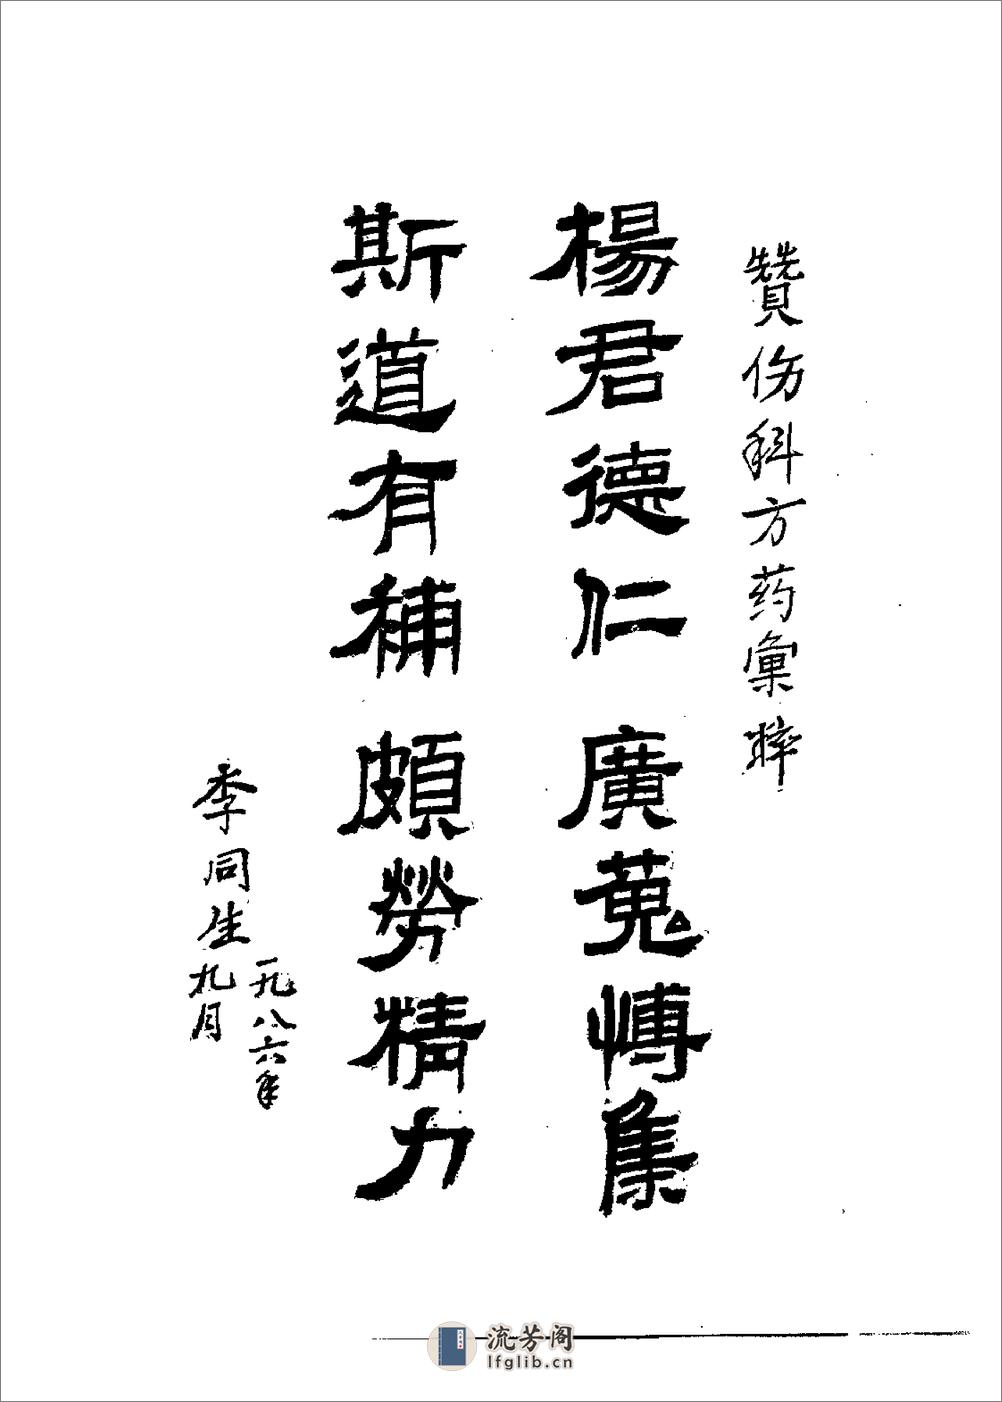 贊伤科方药彙粹
楊君德仁 廣蒐博集
斯道有補 頗勞精力
李同生
一九八六年
九月
流芳阁
lfglib.cn